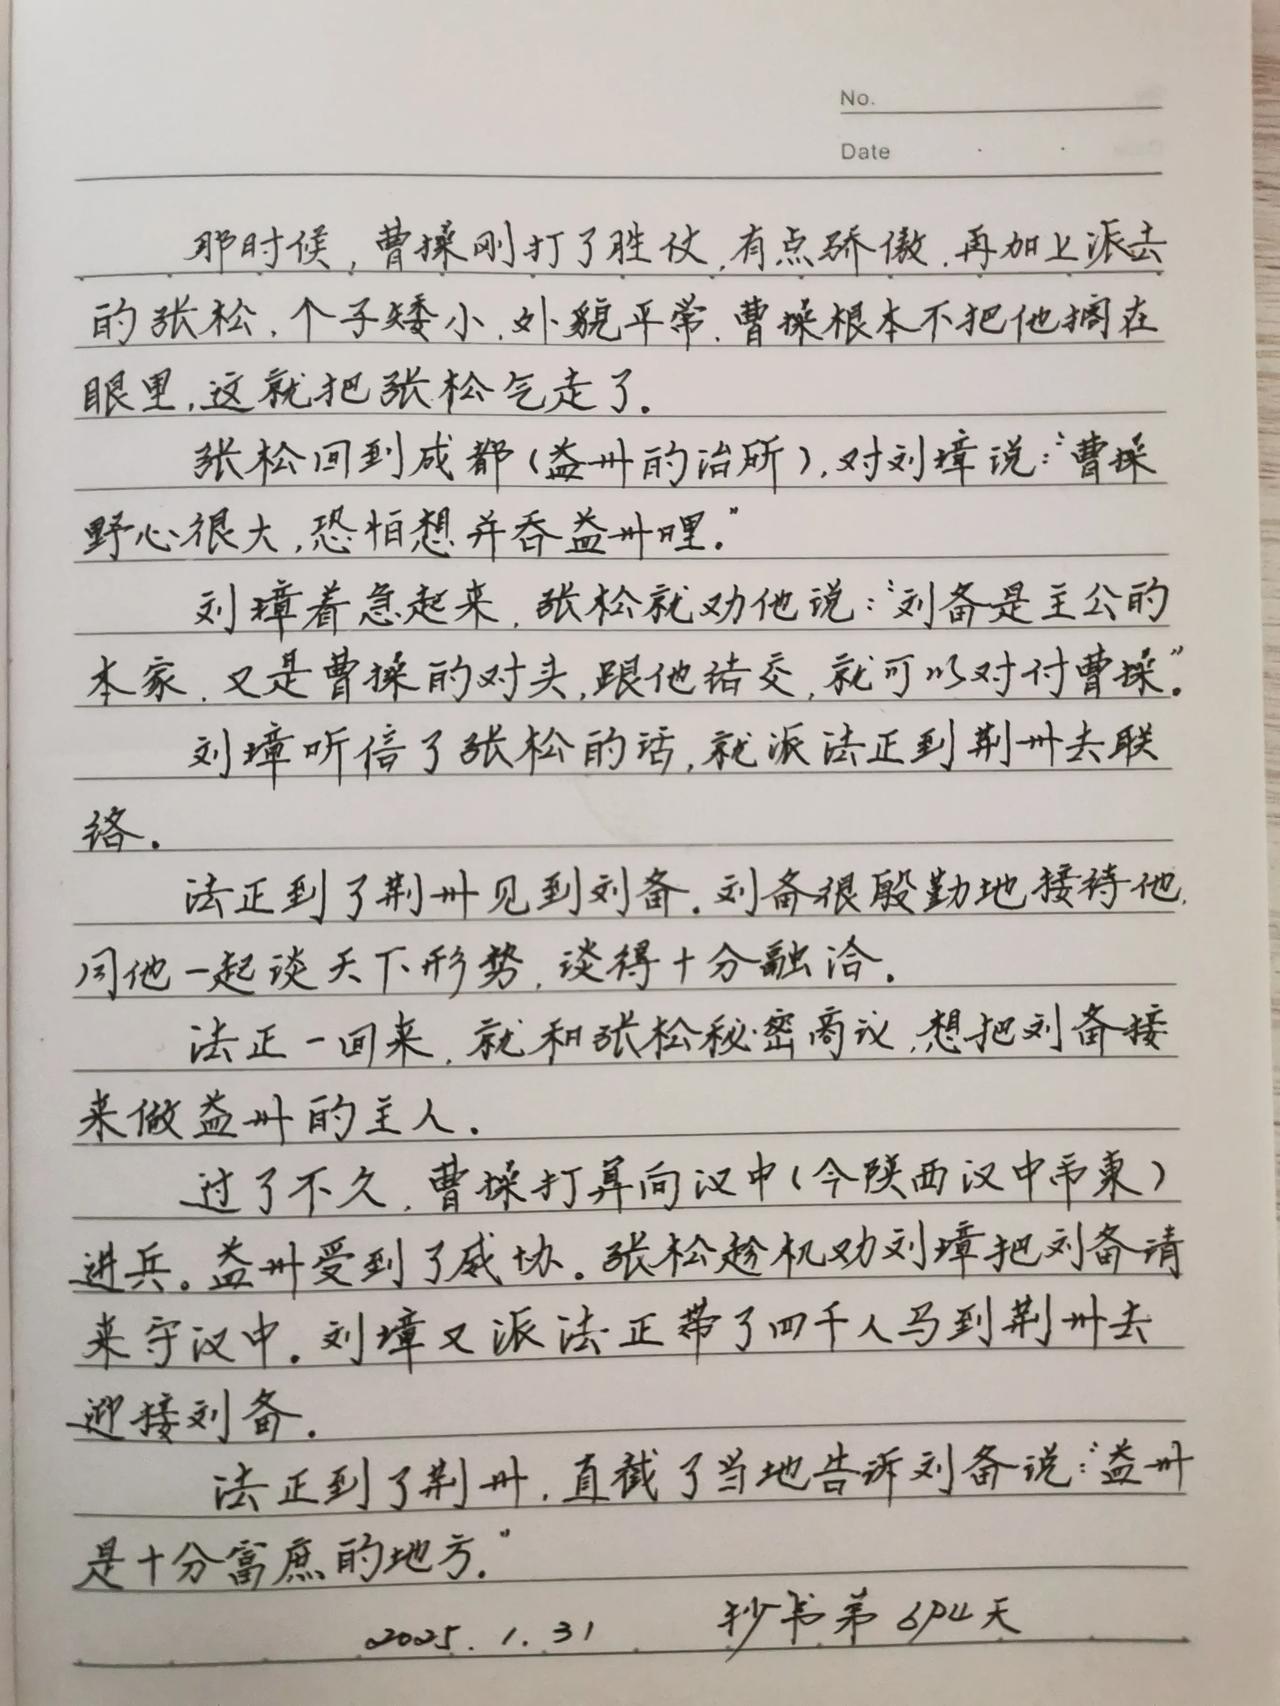 No.
Date
那时候，曹操刚打了胜仗，有点骄傲，再加上派去
的张松，个子矮小，外貌平常，曹操根本不把他搁在
眼里，这就把张松气走了。
张松回到成都（益州的治所），对刘璋说：“曹操
野心很大，恐怕想并吞益州哩。”
刘璋着急起来，张松就劝他说：“刘备是主公的
本家，又是曹操的对头，跟他结交，就可以对付曹操”。
刘璋听信了张松的话，就派法正到荆州去联
络。
法正到了荆州见到刘备。刘备很殷勤地接待他，
同他一起谈天下形势，谈得十分融洽。
法正一回来，就和张松秘密商议，想把刘备接
来做益州的主人。
过了不久，曹操打算向汉中（今陕西汉中市東）
进兵。益州受到了威协。张松趁机劝刘璋把刘备请
来守汉中。刘璋又派法正带了四千人马到荆州去
迎接刘备。
法正到了荆州，直截了当地告诉刘备说：“益州
是十分富庶的地方。”
2025.1.31 抄书第694天